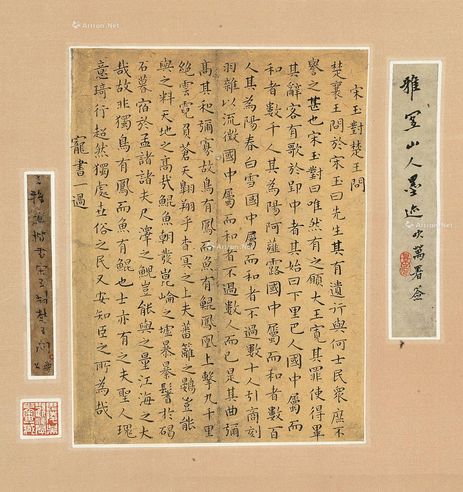 雅宜山人墨迹
宋玉對楚王問
楚襄王問於宋玉曰先生其有遺行與何士民眾庶不
譽之甚也宋玉對曰唯然有之願大王寬其罪使得畢
其辭客有歌於郢中者其始曰下里巴人國中屬而
和者數千人其為陽阿薤露國中屬而和者數百
人其為陽春白雪國中屬而和者不過數十人引商刻
羽雜以流徵國中屬而和者不過數人而已是其曲彌
高其和彌寡故鳥有鳳而魚有鯤鳳凰上擊九千里
絕雲霓負蒼天翱翔乎杳冥之上夫藩籬之鷃豈能
與之料天地之高哉鯤魚朝發崑崙之墟暴鬐於碣
石暮宿於孟諸諸夫尺澤之鯢豈能與之量江海之大
哉故非獨鳥有鳳而魚有鯤也士亦有之夫聖人瑰
意琦行超然獨處世俗之民又安知臣之所為哉
寵書一過
Artron.Net